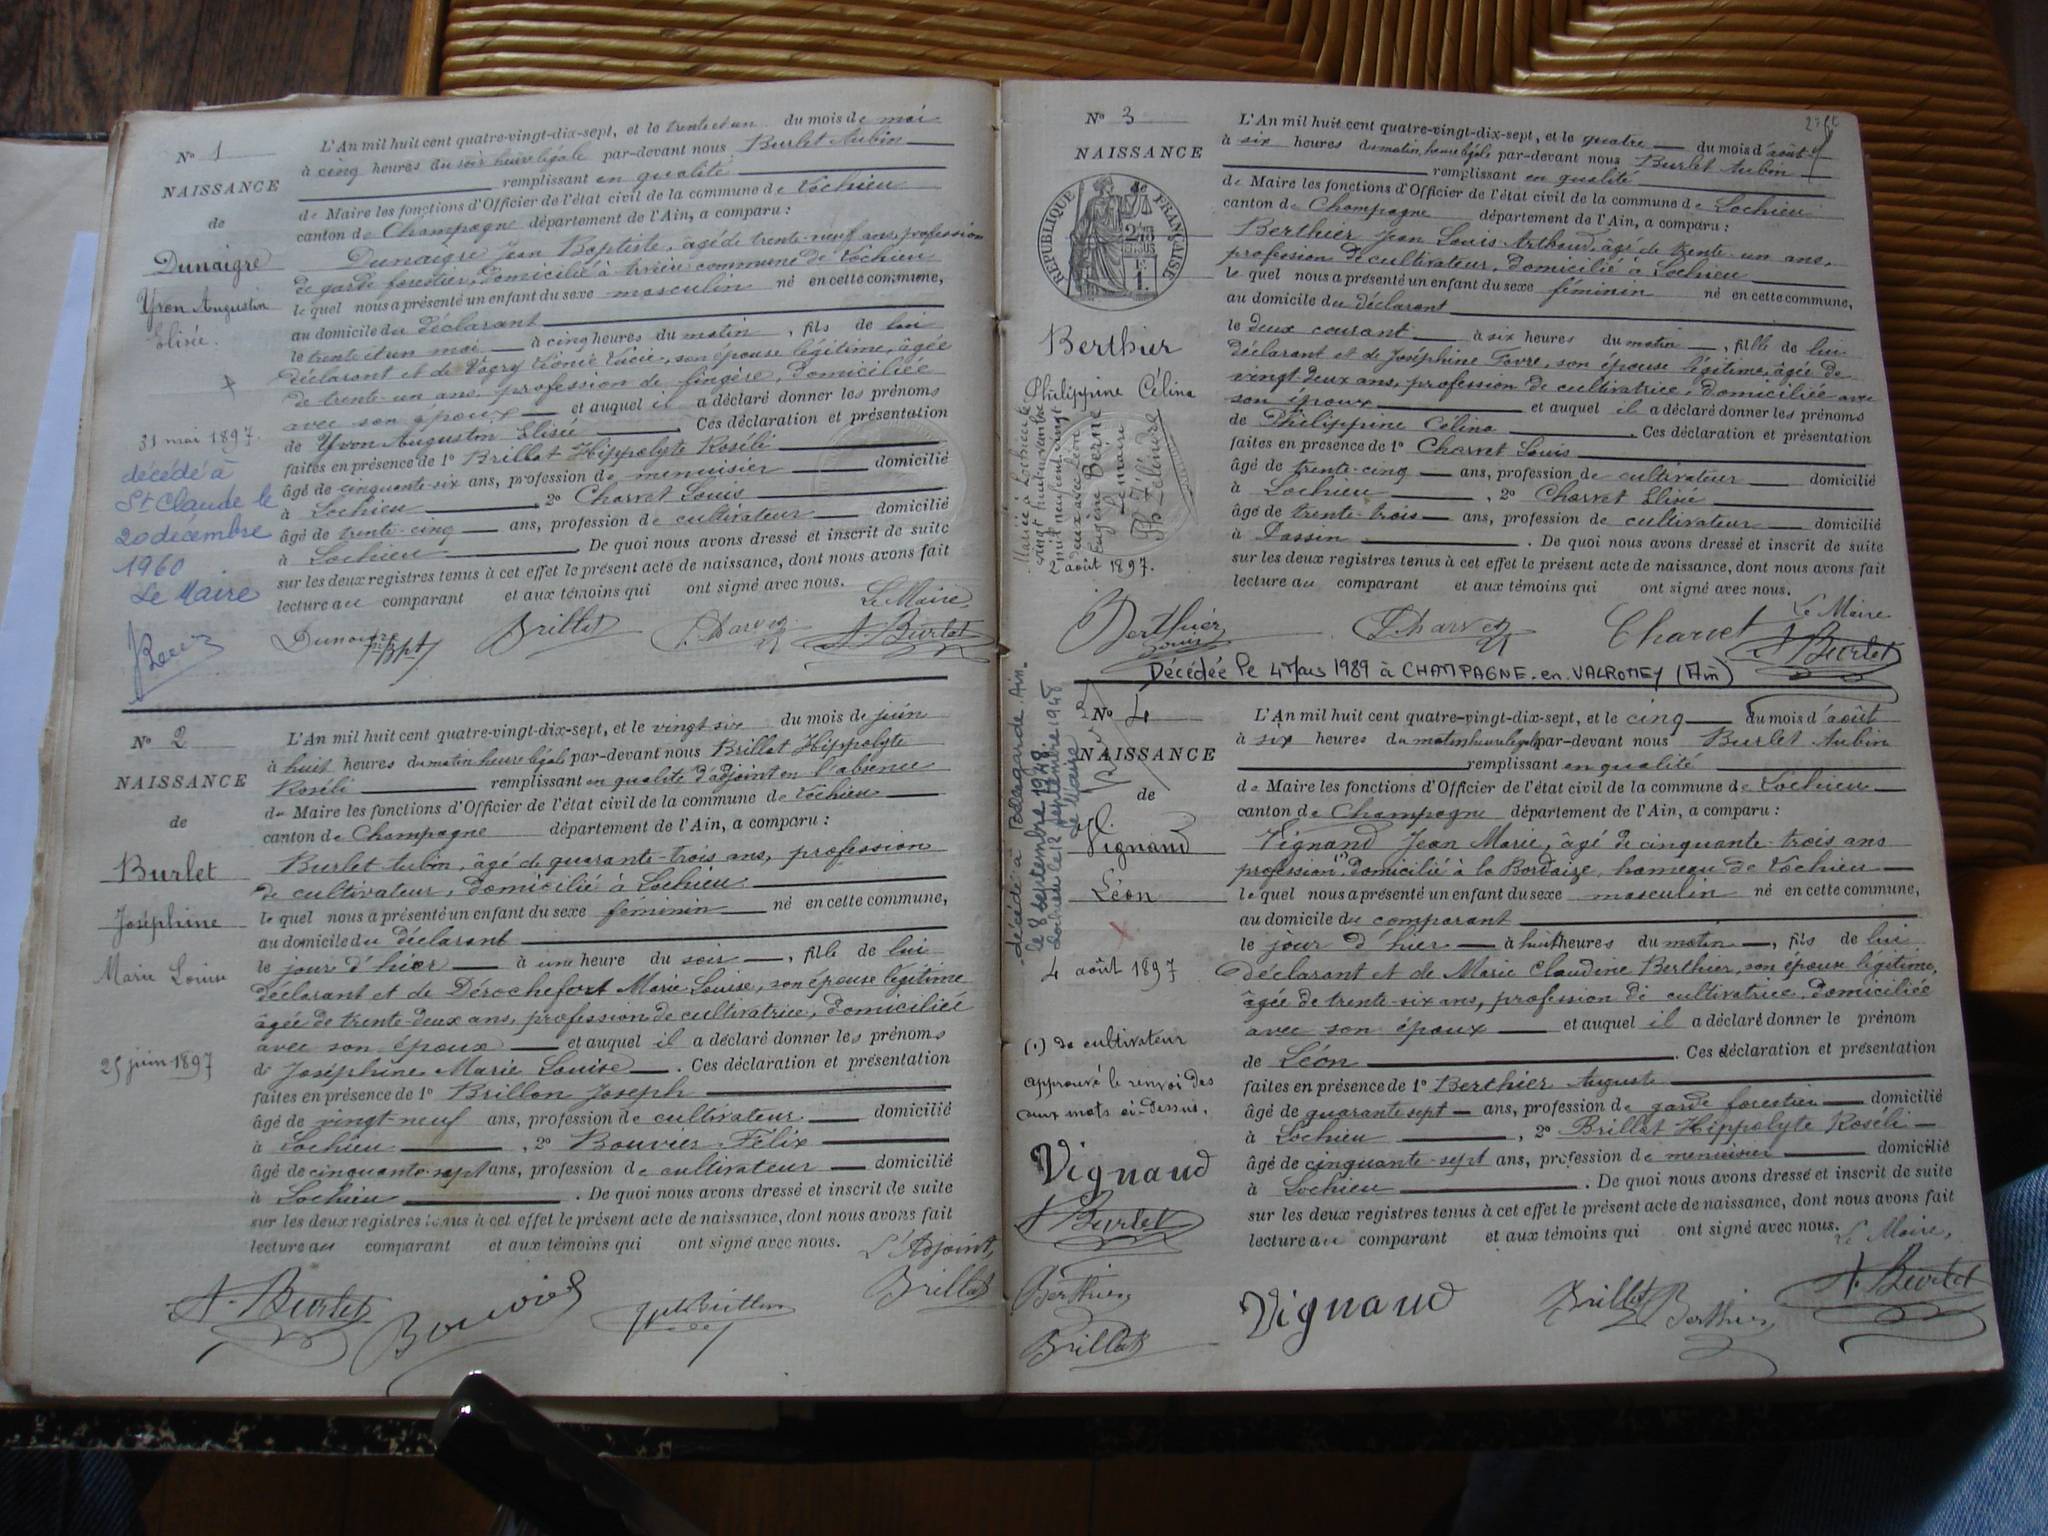 N° 1
NAISSANCE
de
Dunaigre
Yvon Augustin
Elisée.
31 mai 1897.
décédé à
St Claude le
20 décembre
1960
Le Maire
L'An mil huit cent quatre-vingt-dix-sept, et le trente et un du mois de mai
à cinq heures du soir heure légale par-devant nous Burlet Aubin
remplissant en qualité
de Maire les fonctions d'Officier de l'état civil de la commune de Lochieu
canton de Champagne département de l'Ain, a comparu :
Dunaigre Jean Baptiste, âgé de trente-neuf ans, profession
de garde forestier, domicilié à commune de Lochieu
le quel nous a présenté un enfant du sexe masculin né en cette commune,
au domicile du déclarant
le trente et un mai à cinq heures du matin, fils de lui
déclarant et de Léonie Lucie, son épouse légitime, âgée
de trente-un ans, profession de lingère, domiciliée
avec son époux et auquel il a déclaré donner les prénoms
de Yvon Augustin Elisée. Ces déclaration et présentation
faites en présence de 1° Brillat Hippolyte Roséli
âgé de cinquante-six ans, profession de menuisier domicilié
à Lochieu, 2° Charvet Louis
âgé de trente-cinq ans, profession de cultivateur domicilié
à Lochieu. De quoi nous avons dressé et inscrit de suite
sur les deux registres tenus à cet effet le présent acte de naissance, dont nous avons fait
lecture au comparant et aux témoins qui ont signé avec nous.
Le Maire,
Dunaigre Jn Bpt Brillat Charvet A. Burlet
N° 2
NAISSANCE
de
Burlet
Joséphine
Marie Louise
25 juin 1897
L'An mil huit cent quatre-vingt-dix-sept, et le vingt-six du mois de juin
à huit heures du matin heure légale par-devant nous Brillat Hippolyte
Roséli remplissant en qualité d'adjoint en l'absence
du Maire les fonctions d'Officier de l'état civil de la commune de Lochieu
canton de Champagne département de l'Ain, a comparu :
Burlet Aubin, âgé de quarante-trois ans, profession
de cultivateur, domicilié à Lochieu.
le quel nous a présenté un enfant du sexe féminin né en cette commune,
au domicile du déclarant
le jour d'hier à une heure du soir, fille de lui
déclarant et de Dérochefort Marie Louise, son épouse légitime
âgée de trente-deux ans, profession de cultivatrice, domiciliée
avec son époux et auquel il a déclaré donner les prénoms
de Joséphine Marie Louise. Ces déclaration et présentation
faites en présence de 1° Brillon Joseph
âgé de vingt-neuf ans, profession de cultivateur domicilié
à Lochieu, 2° Bouvier Félix
âgé de cinquante-sept ans, profession de cultivateur domicilié
à Lochieu. De quoi nous avons dressé et inscrit de suite
sur les deux registres tenus à cet effet le présent acte de naissance, dont nous avons fait
lecture au comparant et aux témoins qui ont signé avec nous.
L'Adjoint,
A. Burlet Bouvier Brillat
N° 3
NAISSANCE
de
REPUBLIQUE FRANÇAISE
Berthier
Philippine Célina
Marié à Lochieu le
vingt huit novembre
mil neuf cent vingt
deux avec Léon
Eugène Berne
Le maire
2 août 1897.
L'An mil huit cent quatre-vingt-dix-sept, et le quatre du mois d'août
à six heures du matin, heure légale par-devant nous Burlet Aubin
remplissant en qualité
de Maire les fonctions d'Officier de l'état civil de la commune de Lochieu
canton de Champagne département de l'Ain, a comparu :
Berthier Jean Louis Arthaud, âgé de trente-un ans,
profession de cultivateur, domicilié à Lochieu
le quel nous a présenté un enfant du sexe féminin né en cette commune,
au domicile du déclarant
le deux courant à six heures du matin, fille de lui
déclarant et de Joséphine Favre, son épouse légitime, âgée de
vingt-deux ans, profession de cultivatrice, domiciliée avec
son époux et auquel il a déclaré donner les prénoms
de Philippine Célina. Ces déclaration et présentation
faites en présence de 1° Charvet Louis
âgé de trente-cinq ans, profession de cultivateur domicilié
à Lochieu, 2° Charvet Elisée
âgé de trente-trois ans, profession de cultivateur domicilié
à Passin. De quoi nous avons dressé et inscrit de suite
sur les deux registres tenus à cet effet le présent acte de naissance, dont nous avons fait
lecture au comparant et aux témoins qui ont signé avec nous.
Le Maire
Berthier Louis Charvet Charvet A. Burlet
Décédée le 4 Mars 1989 à CHAMPAGNE-en-VALROMEY (Ain)
N° 4
NAISSANCE
de
Vignand
Léon
4 août 1897
décédé à Bellegarde Ain
le 8 septembre 1948
Lochieu le 12 septembre 1948
Le Maire
(1) de cultivateur
approuvé le renvoi des
aux mots ci-dessus.
Vignaud
A. Burlet
Berthier
Brillat
L'An mil huit cent quatre-vingt-dix-sept, et le cinq du mois d'août
à six heures du matin heure légale par-devant nous Burlet Aubin
remplissant en qualité
de Maire les fonctions d'Officier de l'état civil de la commune de Lochieu
canton de Champagne département de l'Ain, a comparu :
Vignand Jean Marie, âgé de cinquante-trois ans
profession (1) domicilié à la Bordaize, hameau de Lochieu
le quel nous a présenté un enfant du sexe masculin né en cette commune,
au domicile du comparant
le jour d'hier à huit heures du matin, fils de lui
déclarant et de Marie Claudine Berthier, son épouse légitime,
âgée de trente-six ans, profession de cultivatrice, domiciliée
avec son époux et auquel il a déclaré donner le prénom
de Léon. Ces déclaration et présentation
faites en présence de 1° Berthier Auguste
âgé de quarante sept ans, profession de garde forestier domicilié
à Lochieu, 2° Brillat Hippolyte Roséli
âgé de cinquante-sept ans, profession de menuisier domicilié
à Lochieu. De quoi nous avons dressé et inscrit de suite
sur les deux registres tenus à cet effet le présent acte de naissance, dont nous avons fait
lecture au comparant et aux témoins qui ont signé avec nous.
Le Maire,
Vignaud Brillat Berthier A. Burlet